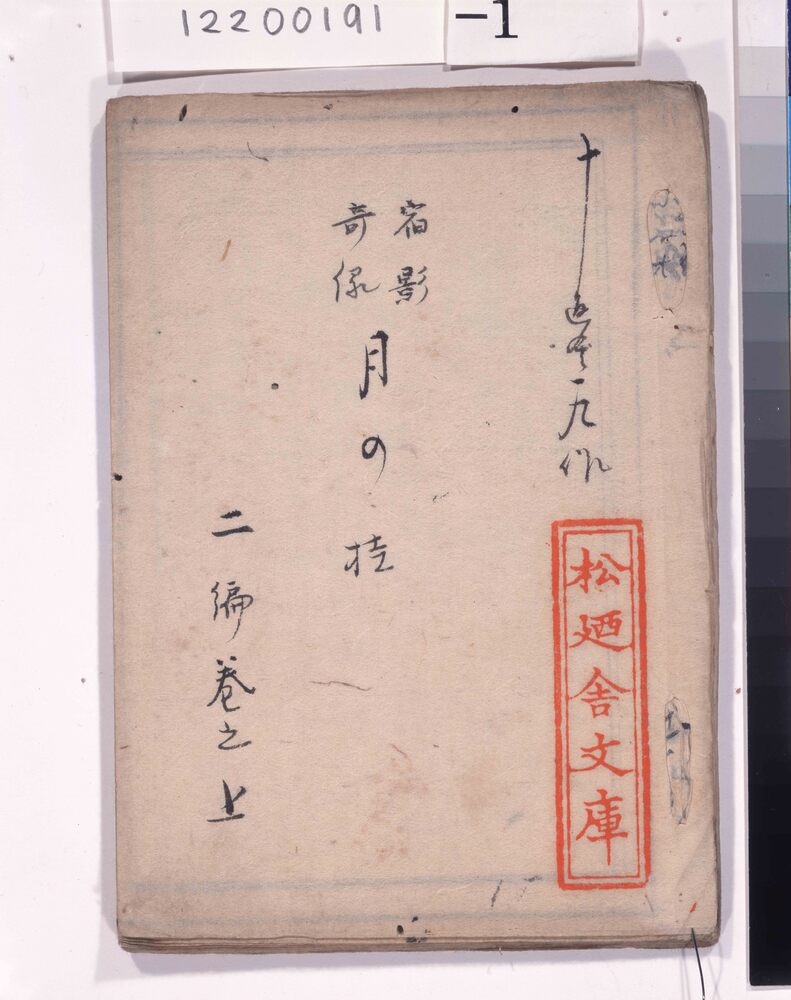 12200191
-1
十返舎一九作
松廼舎文庫
宿影
奇
月の桂
二編巻之上